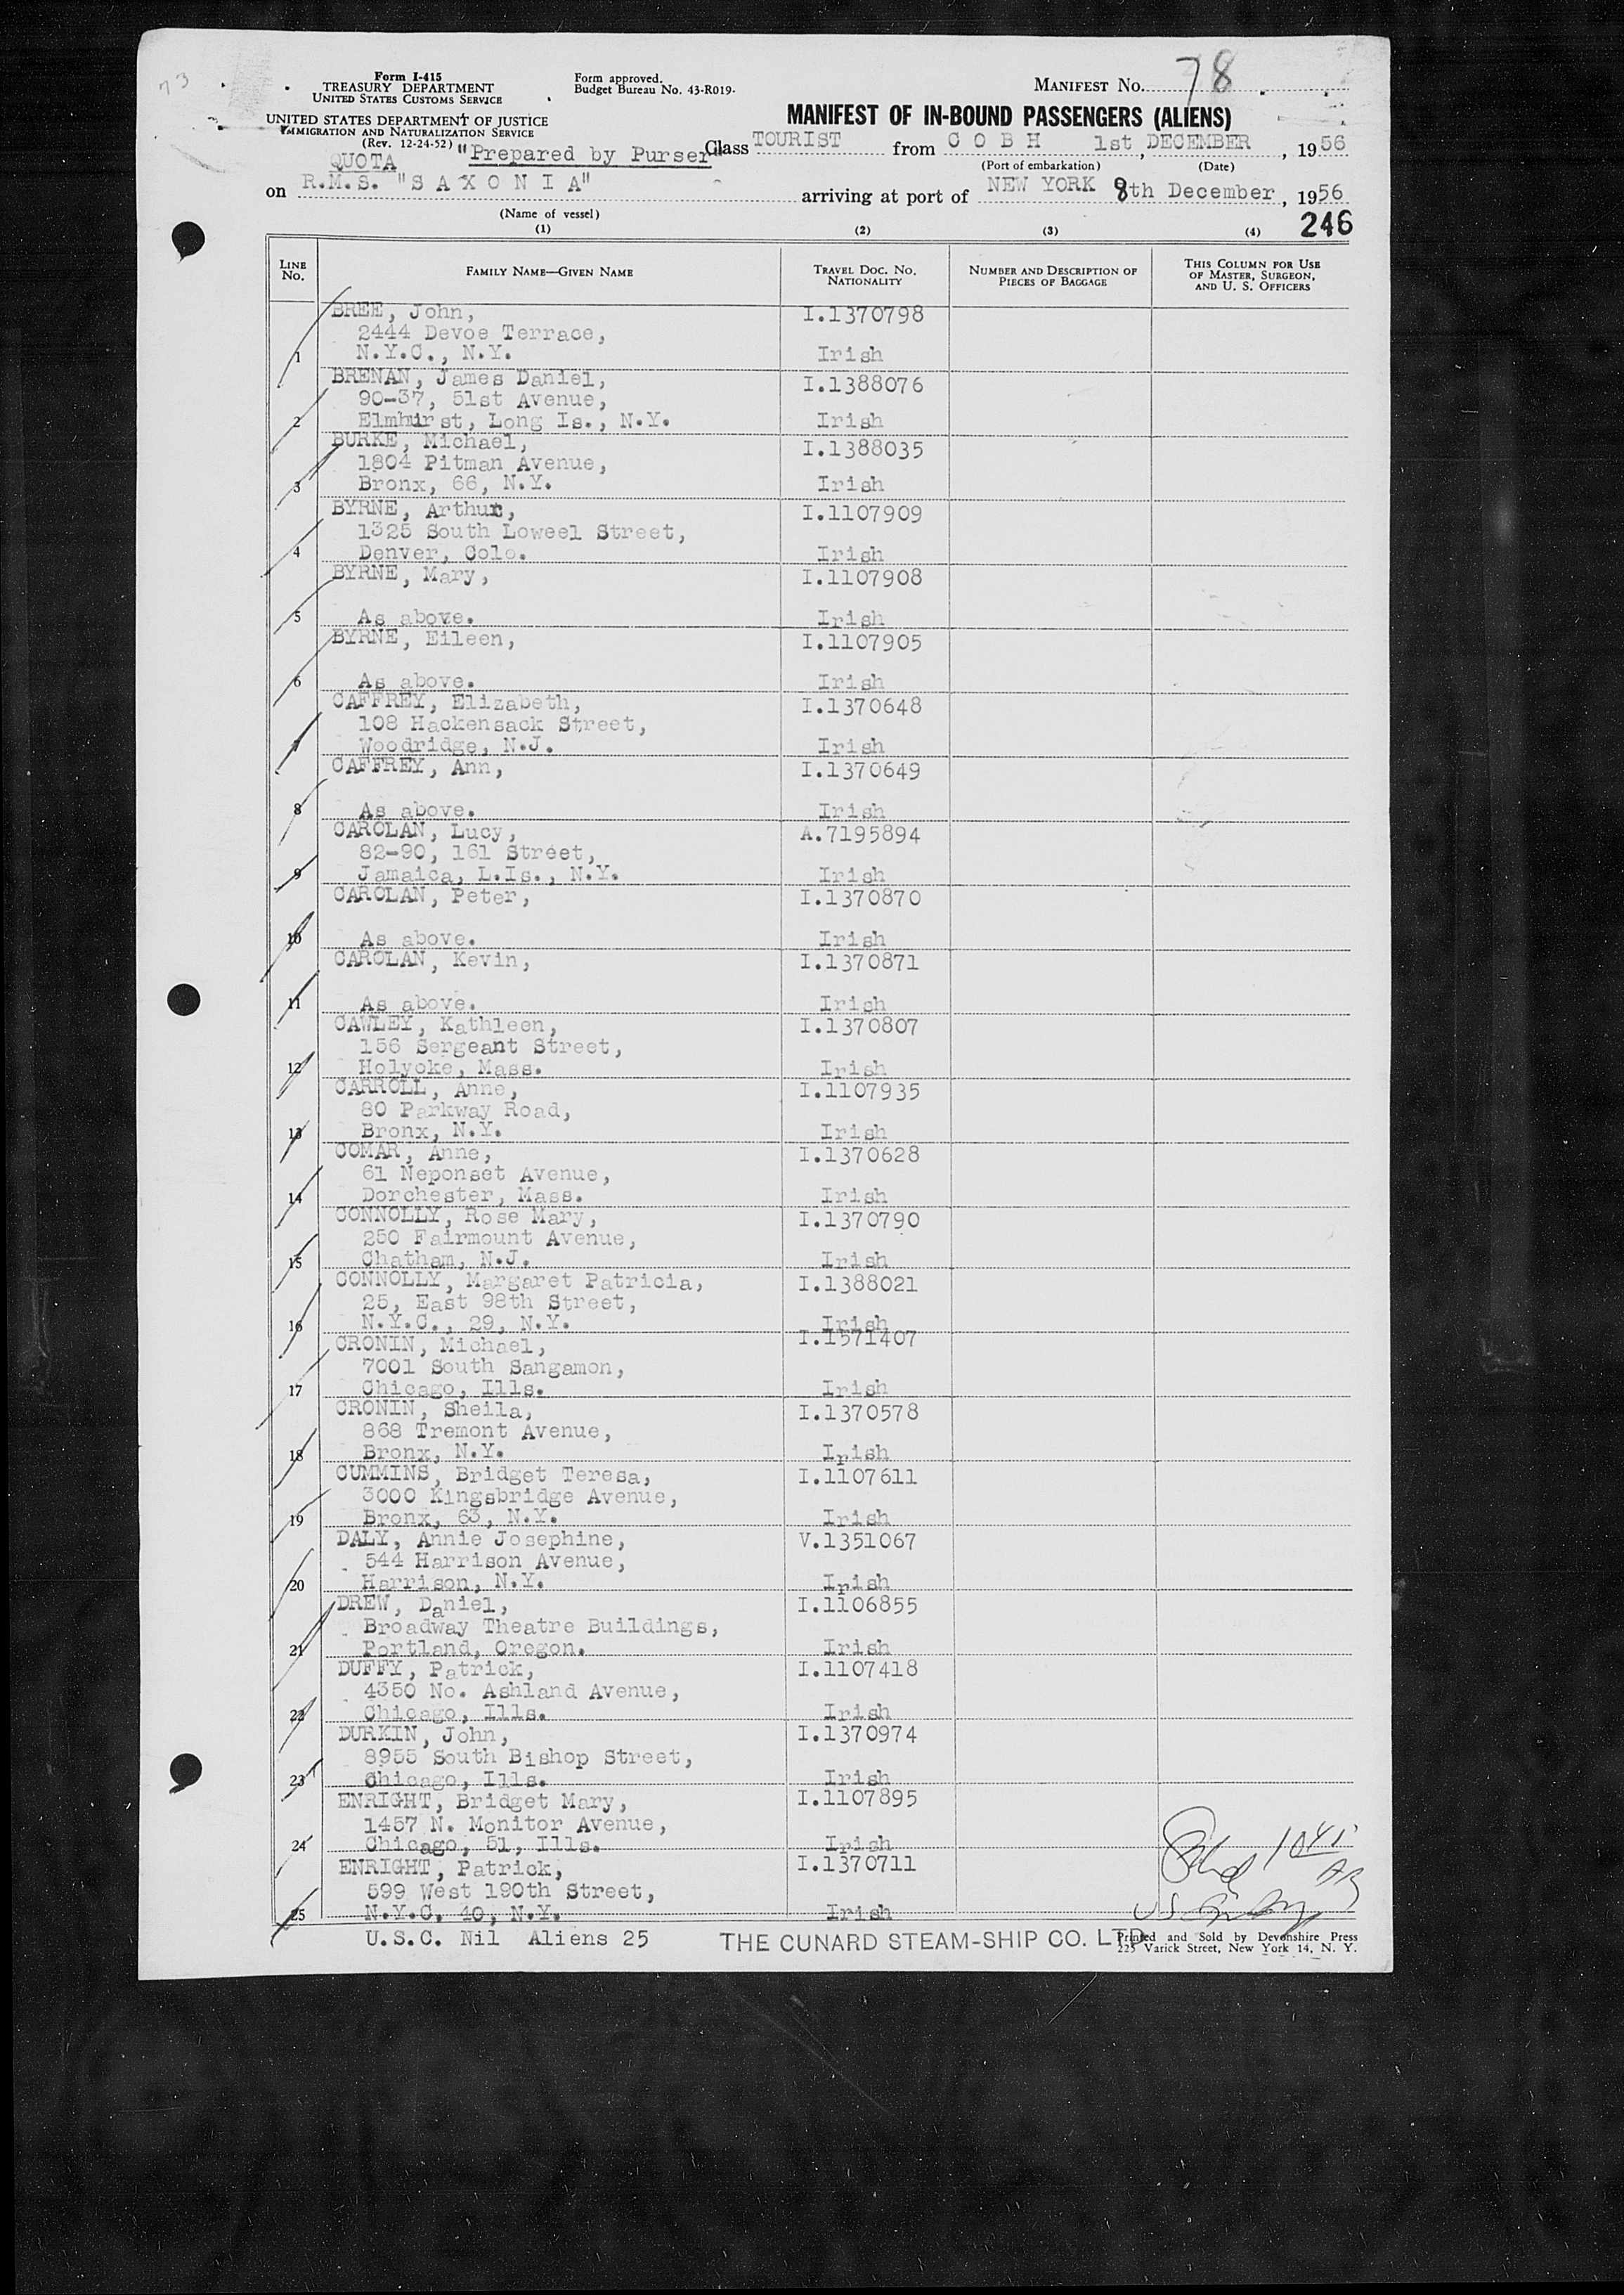 73
Form I-415
TREASURY DEPARTMENT
UNITED STATES CUSTOMS SERVICE
UNITED STATES DEPARTMENT OF JUSTICE
IMMIGRATION AND NATURALIZATION SERVICE
(Rev. 12-24-52)
Form approved.
Budget Bureau No. 43-R019-
MANIFEST No. 78
MANIFEST OF IN-BOUND PASSENGERS (ALIENS)
QUOTA "Prepared by Purser" Class TOURIST from C O B H 1st, DECEMBER, 1956
(Port of embarkation) (Date)
on R.M.S. "S A X O N I A" arriving at port of NEW YORK 8th December, 1956
(Name of vessel)
246
(1) (2) (3) (4)
LINE No. FAMILY NAME—GIVEN NAME TRAVEL DOC. No. NATIONALITY NUMBER AND DESCRIPTION OF PIECES OF BAGGAGE THIS COLUMN FOR USE OF MASTER, SURGEON, AND U. S. OFFICERS
BREE, John, I.1370798
2444 Devoe Terrace,
1 N.Y.C., N.Y. Irish
BRENAN, James Daniel, I.1388076
90-37, 51st Avenue,
2 Elmhurst, Long Is., N.Y. Irish
BURKE, Michael, I.1388035
1804 Pitman Avenue,
3 Bronx, 66, N.Y. Irish
BYRNE, Arthur, I.1107909
1325 South Loweel Street,
4 Denver, Colo. Irish
BYRNE, Mary, I.1107908
5 As above. Irish
BYRNE, Eileen, I.1107905
6 As above. Irish
CAFFREY, Elizabeth, I.1370648
108 Hackensack Street,
7 Woodridge, N.J. Irish
CAFFREY, Ann, I.1370649
8 As above. Irish
CAROLAN, Lucy, A.7195894
82-90, 161 Street,
9 Jamaica, L.Is., N.Y. Irish
CAROLAN, Peter, I.1370870
10 As above. Irish
CAROLAN, Kevin, I.1370871
11 As above. Irish
CAWLEY, Kathleen, I.1370807
156 Sergeant Street,
12 Holyoke, Mass. Irish
CARROLL, Anne, I.1107935
80 Parkway Road,
13 Bronx, N.Y. Irish
COMAR, Anne, I.1370628
61 Neponset Avenue,
14 Dorchester, Mass. Irish
CONNOLLY, Rose Mary, I.1370790
250 Fairmount Avenue,
15 Chatham, N.J. Irish
CONNOLLY, Margaret Patricia, I.1388021
25, East 98th Street,
16 N.Y.C., 29, N.Y. Irish
CRONIN, Michael, I.1571407
7001 South Sangamon,
17 Chicago, Ills. Irish
CRONIN, Sheila, I.1370578
868 Tremont Avenue,
18 Bronx, N.Y. Irish
CUMMINS, Bridget Teresa, I.1107611
3000 Kingsbridge Avenue,
19 Bronx, 63, N.Y. Irish
DALY, Annie Josephine, V.1351067
544 Harrison Avenue,
20 Harrison, N.Y. Irish
DREW, Daniel, I.1106855
Broadway Theatre Buildings,
21 Portland, Oregon. Irish
DUFFY, Patrick, I.1107418
4350 No. Ashland Avenue,
22 Chicago, Ills. Irish
DURKIN, John, I.1370974
8955 South Bishop Street,
23 Chicago, Ills. Irish
ENRIGHT, Bridget Mary, I.1107895
1457 N. Monitor Avenue,
24 Chicago, 51, Ills. Irish
ENRIGHT, Patrick, I.1370711
599 West 190th Street,
25 N.Y.C. 40, N.Y. Irish
U.S.C. Nil Aliens 25 THE CUNARD STEAM-SHIP CO. LTD
Printed and Sold by Devonshire Press
225 Varick Street, New York 14, N. Y.